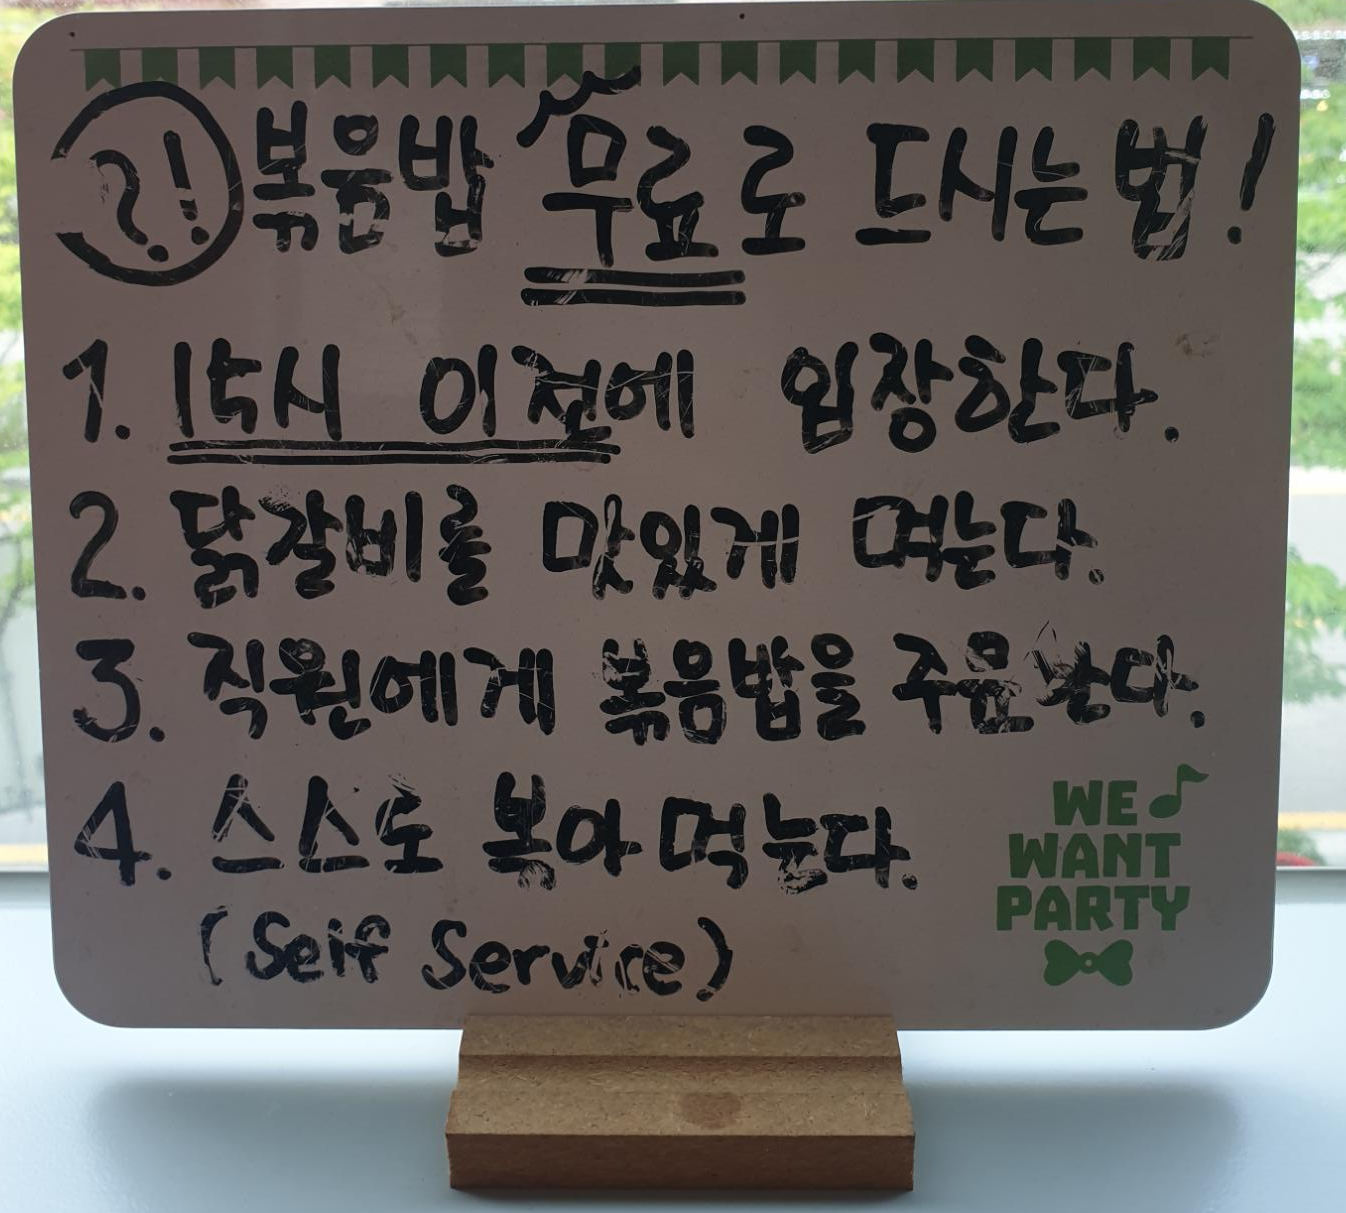 ?! 볶음밥 무료로 드시는 법!
1. 15시 이전에 입장한다.
2. 닭갈비를 맛있게 먹는다.
3. 직원에게 볶음밥을 주문한다.
4. 스스로 볶아 먹는다.
(Self Service)
WE
WANT
PARTY